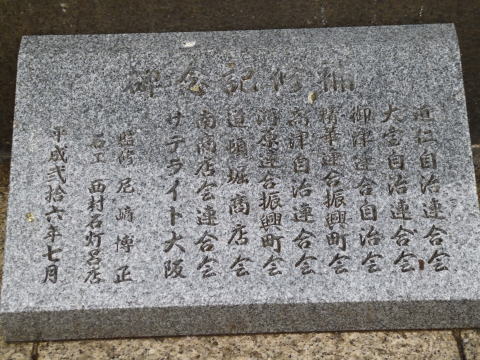 補修記念碑
道仁自治連合会
大宝自治連合会
御津連合自治会
精華連合振興町会
高津自治連合会
河原連合振興町会
道頓堀商店会
南商店会連合会
サテライト大阪
監修 尼﨑博正
石工 西村石灯呂店
平成弐拾六年七月